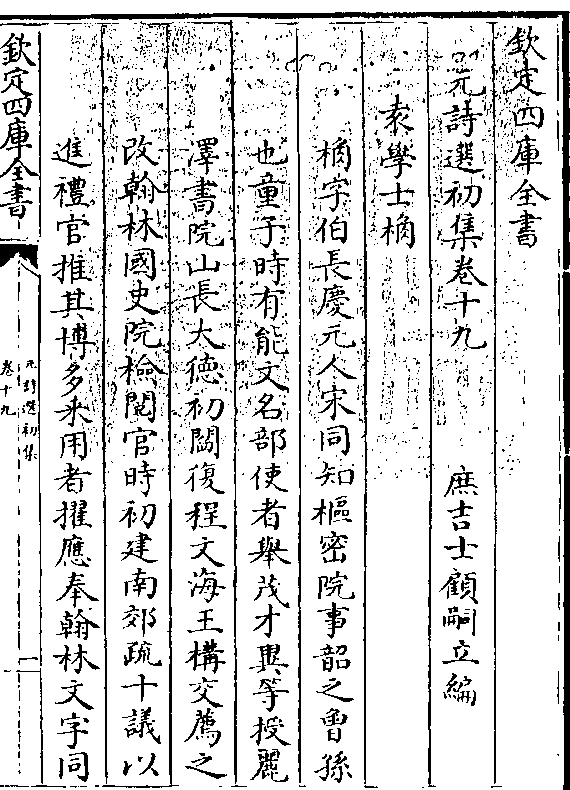 欽定四庫全書
元詩選初集卷十九
庶吉士顧嗣立編
袁學士桷
桷字伯長慶元人宋同知樞密院事韶之曾孫
也童子時有能文名部使者舉茂才異等授麗
澤書院山長大德初閻復程文海王構交薦之
改翰林國史院檢閲官時初建南郊疏十議以
進禮官推其博多采用者擢應奉翰林文字同
欽定四庫全書
元詩選初集
卷十九
一